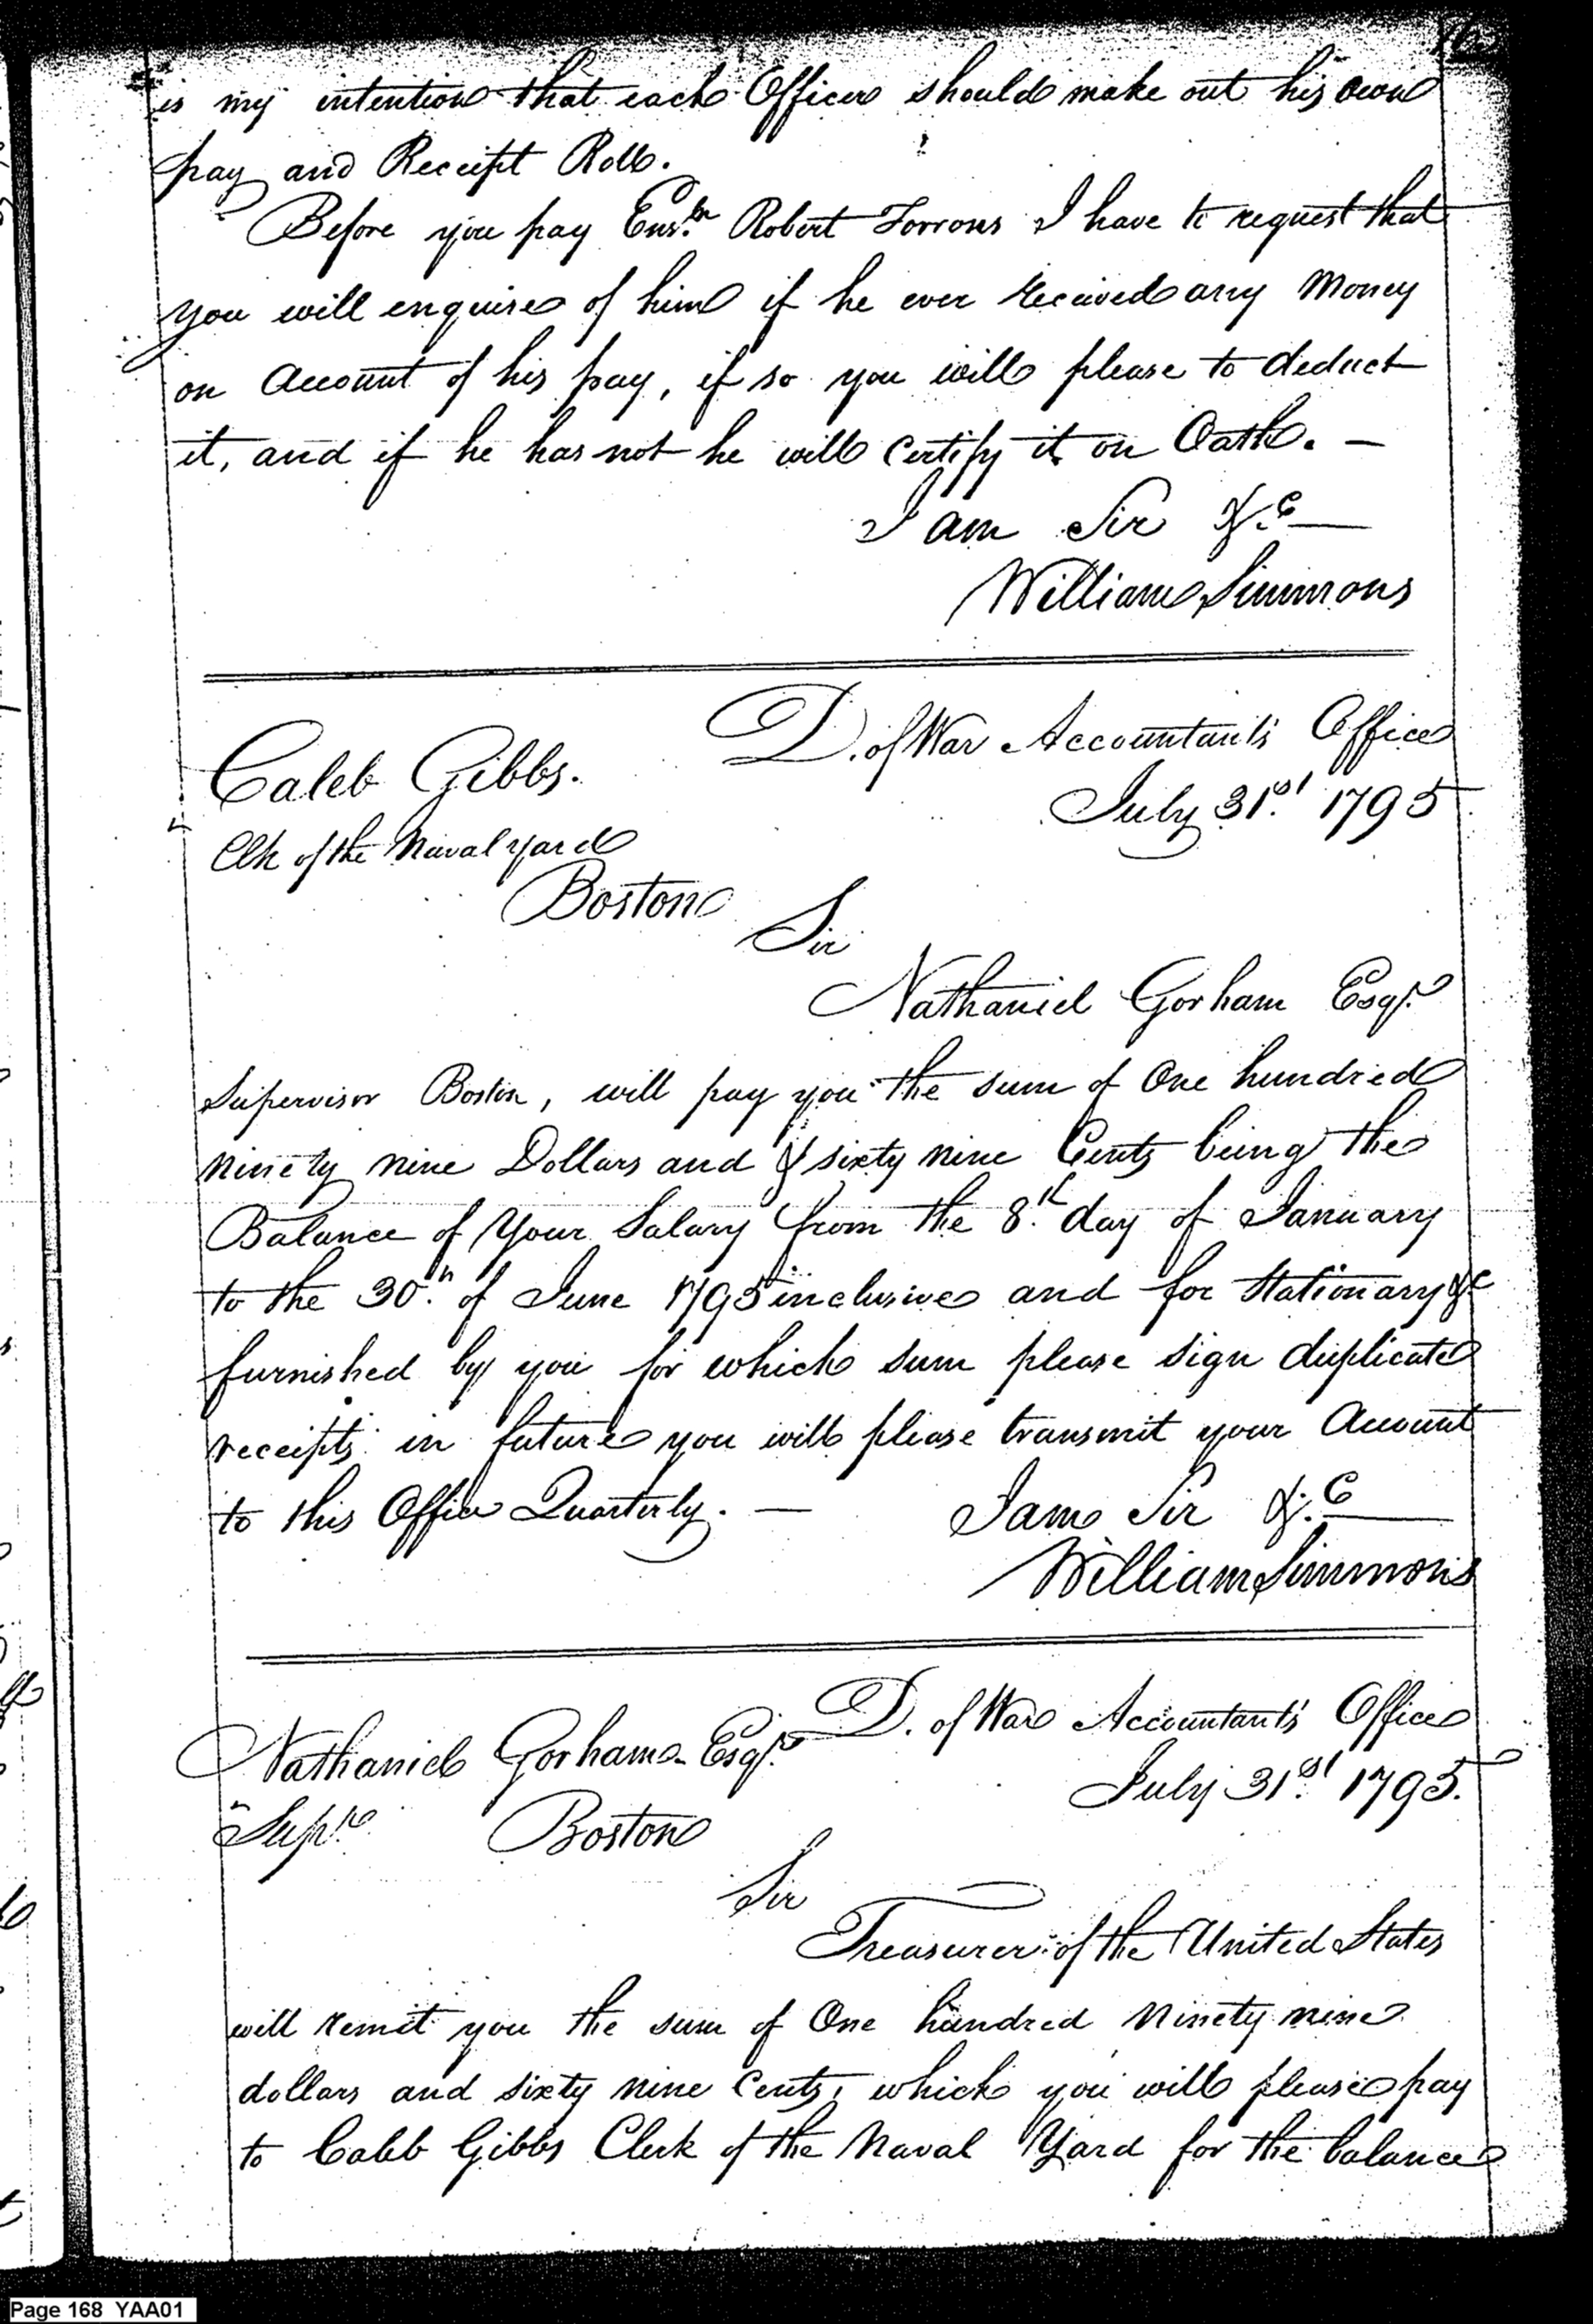 is my intention that each Officer should make out his own
pay and Receipt Roll.
Before you pay Ens.n Robert Torrons I have to request that
you will enquire of him if he ever received any Money
on Account of his pay, if so you will please to deduct
it, and if he has not he will certify it on Oath. —
I am Sir &.c
William Simmons
D. of War Accountant's Office
Caleb Gibbs.
July 31st 1795
Clk of the Naval yard
Boston
Sir
Nathaniel Gorham Esqr.
Supervisor Boston, will pay you the sum of One hundred
ninety nine Dollars and & sixty nine Cents being the
Balance of Your Salary from the 8.th day of January
to the 30.th of June 1795 inclusive and for Stationary &c
furnished by you for which sum please sign duplicate
receipts in future you will please transmit your Account
to this Office Quarterly. —
I am Sir &.c
William Simmons
D. of War Accountant's Office
Nathaniel Gorham Esqr.
July 31st 1795.
Supr.
Boston
Sir
Treasurer of the United States
will remit you the sum of One hundred Ninety nine
dollars and sixty nine Cents, which you will please pay
to Caleb Gibbs Clerk of the Naval Yard for the balance
Page 168 YAA01